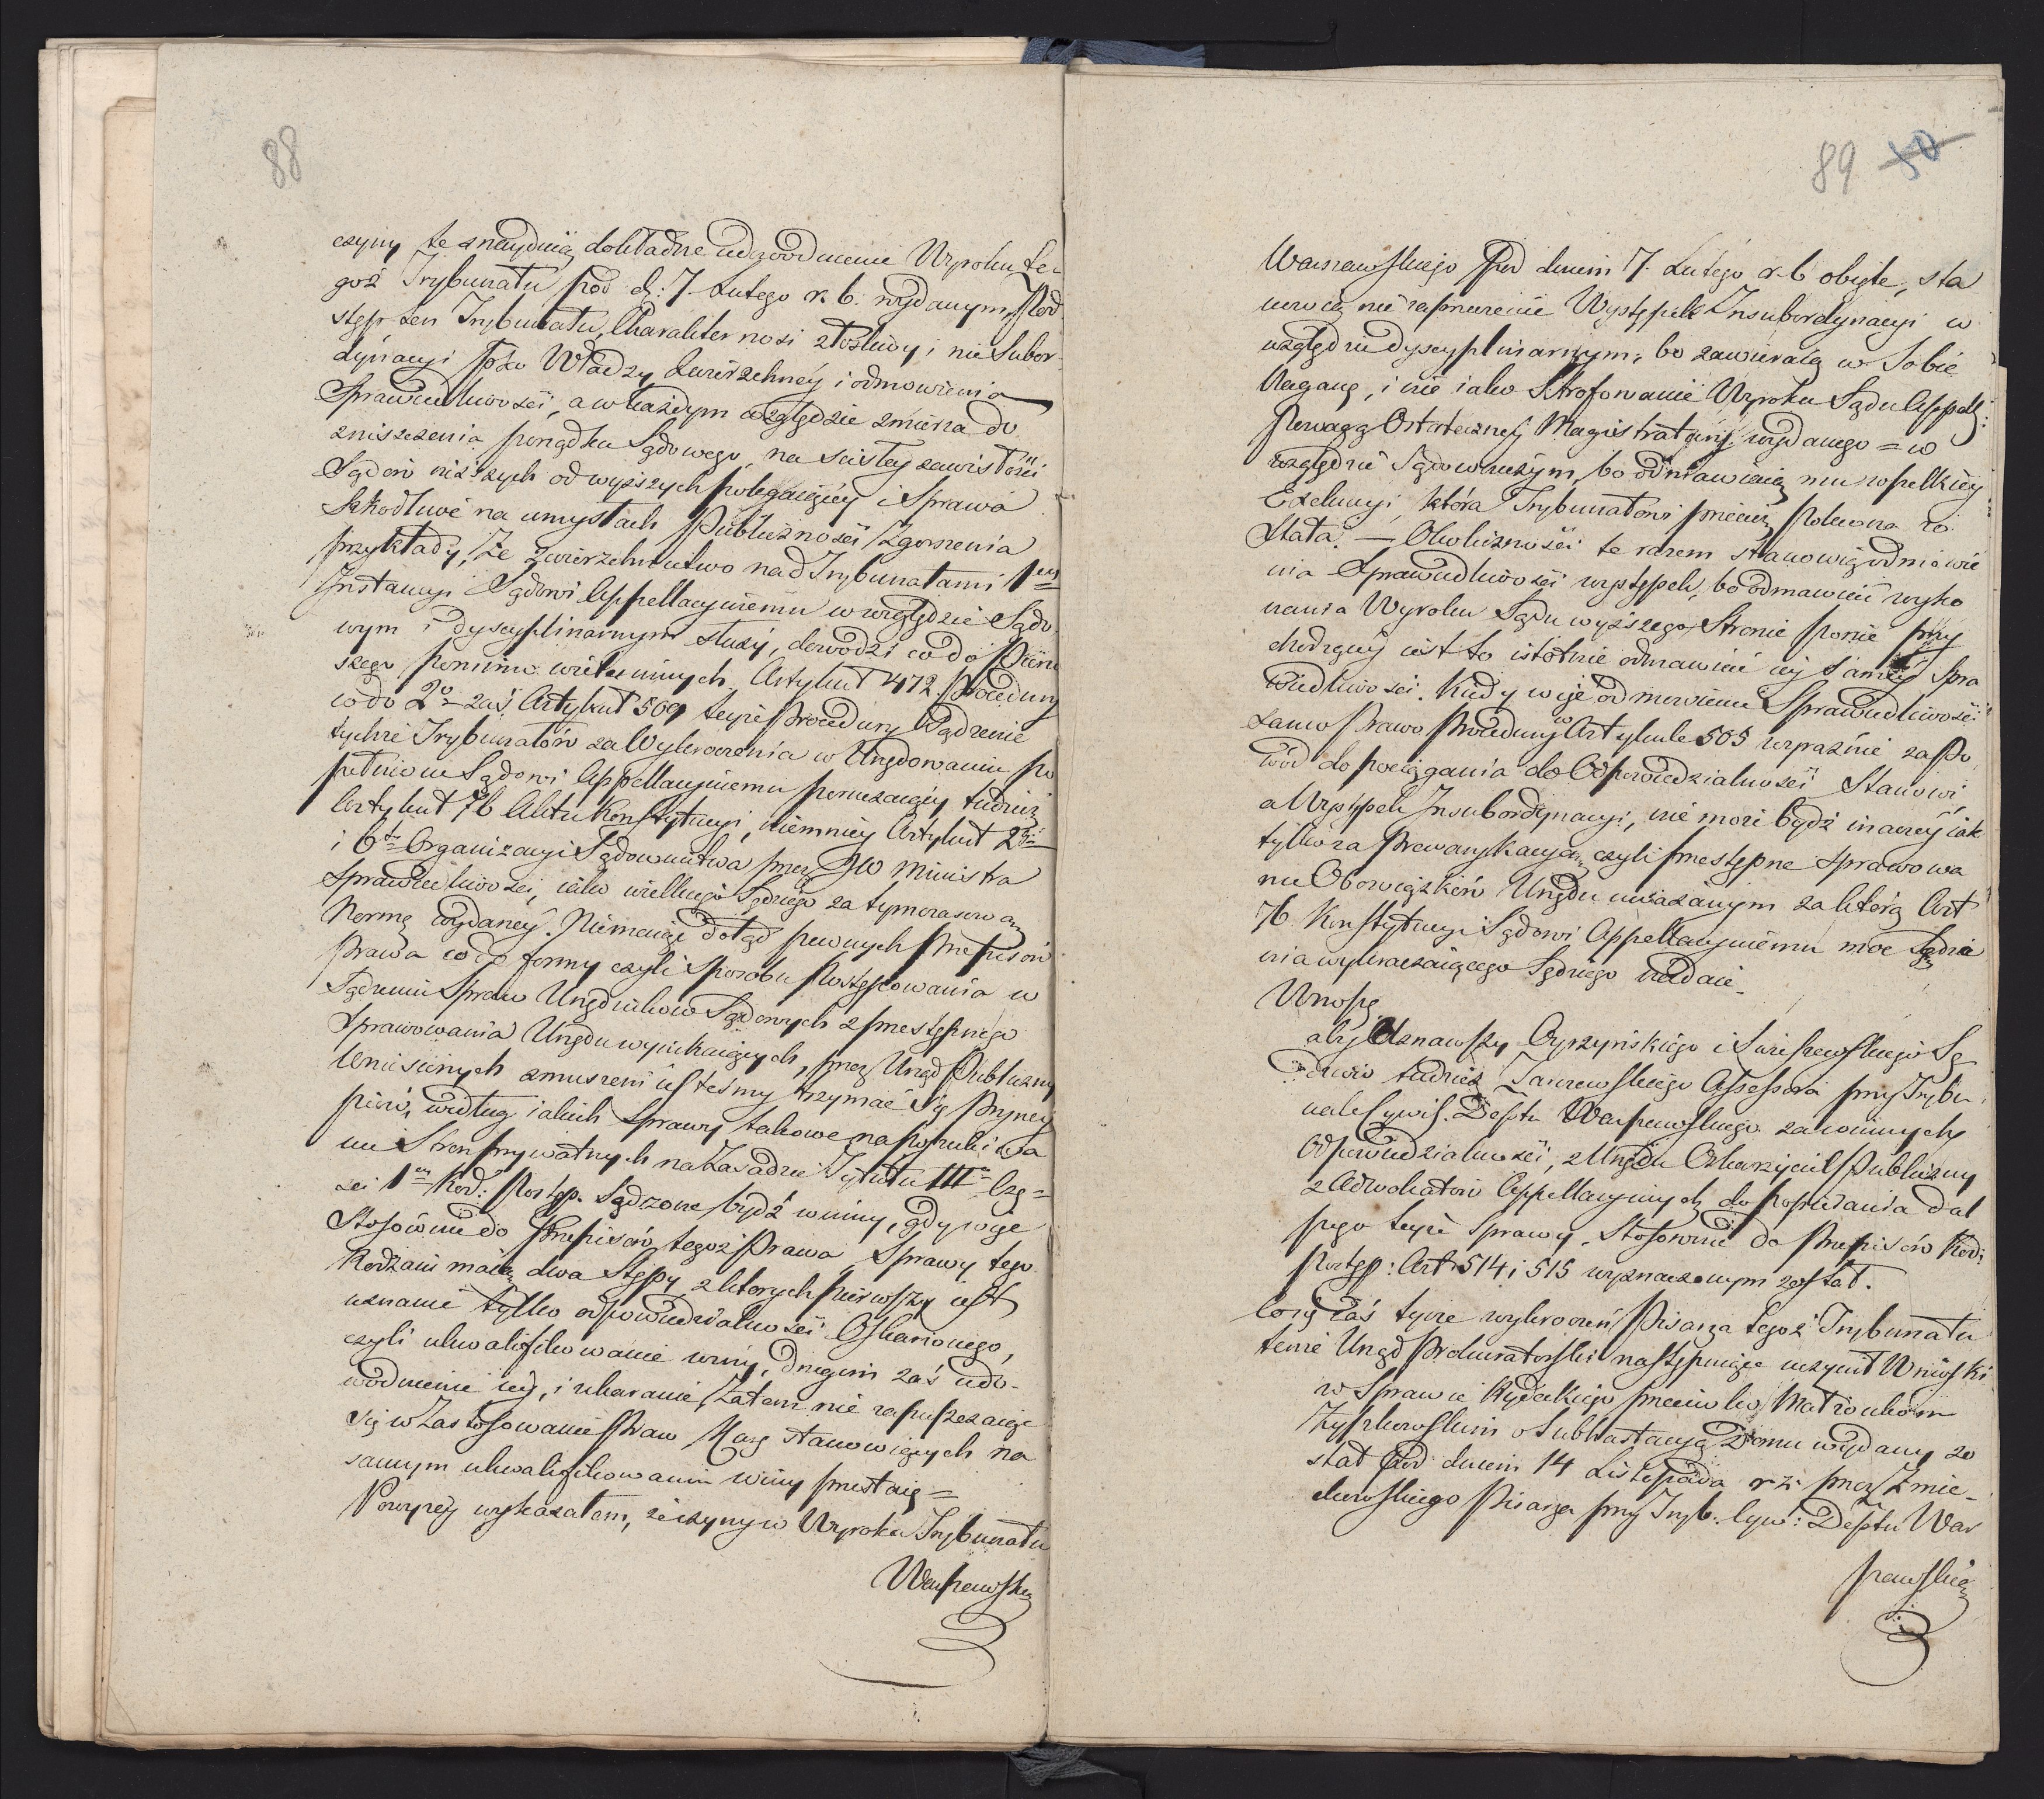 88
czyny te znayduią dokładne udowodnienie Wyroku te-
goż Trybunału pod d: 7. Lutego r. b. wydanym, Pod
stęp ten Trybunału, Charakter nosi złośliwy, i nie Subor-
dynacyi Władzy Zwierzchney i odmowienia
Sprawiedliwości, a w każdym względzie zmierza do
zniszczenia porządku Sądowego, na ścisłey zawisłości
Sądów niższych od wyższych polegaiącey i Sprawa
szkodliwe na umysłach Publiczności zgorszenia
przykłady, Że zwierzchnictwo nad Trybunałami 1ey
Instancyi Sądowi Appellacyinemu w względzie Sądo-
wym i dyscyplinarnym służy, dowodzi co do Pierw
szego pomimo wielu innych Artykuł 472 Procedury
co do 2o zaś Artykuł 509 teyże Procedury Sądzenie
tychże Trybunałów za Wykroczenia w Urzędowaniu po
pełnione Sądowi Appellacyinemu poruczaiący tudzież
Artykuł 76 Aktu Konstytucyi, niemniey Artykuł 2gi
i 6ty Organizacyi Sądownictwa przez JW Ministra
Sprawiedliwości, iako wielkiego Sędziego za tymczasową
Normę wydaney. Niemaiąc dotąd pewnych Przepisów
Prawa co do formy czyli Sposobu Postępowania w
Sądzeniu Spraw Urzędników Sądowych z przestępnego
Sprawowania Urzędu wynikaiących, przez Urząd Publiczny
wniesionych zmuszeni iesteśmy trzymać się Przyncy
piów, według iakich Sprawy takowe na Poszukiwa
nie Stron prywatnych na Zasadzie Tytułu IIIo Czę=
ści 1ey Kod: Postęp. Sądzone bydź winny, gdy więc
Stosownie do Przepisów tegoż Prawa Sprawy tego
Rodzaiu maią dwa Stępy, z których pierwszy iest
uznanie tylko odpowiedzialności Oskarżonego,
czyli ukwalifikowanie winy, drugim zaś udo-
wodnienie iey, i ukaranie, Zatem nie zapuszczaiąc
się w Zastosowanie Praw Karę stanowiących na
samym ukwalifikowaniu winy przestaię=
Powyżey wykazałem, że czyny w Wyroku Trybunału
Warszawsk
89 50
Warszawskiego Pod dniem 7. Lutego r. b obięte, sta
nowią nie zaprzeczenie Występek Insubordynacyi w
względzie dyscyplinarnym; bo zawieraią w Sobie
Naganę, i nie iako Strofowanie Wyroku Sądu Appell:
Powagą Ostateczney Magistratury wydanego = w
względzie Sądowniczym, bo odmawiaią mu wszelkiey
Exekucyi, która Trybunałowi przecież Polecona zo
stała. — Okoliczności te razem stanowią odmówie
nia Sprawiedliwości występek, bo odmawiać wyko
nania Wyroku Sądu wyższego, Stronie ponie przy
chodzącey iest to istotnie odmawiać iey samey Spra
wiedliwości. Kiedy więc odmowienie Sprawiedliwości
samo Prawo Procedury w Artykule 505 wyraźnie za Po
wód do pociągania do Odpowiedzialności Stanowi,
a Występek Insubordynacyi, nie może bydź inaczey iak
tylko za Prewarykacyą, czyli przestępne Sprawowa
nie Obowiązków Urzędu uważanym za którą Art
76 Konstytucyi Sądowi Appellacyinemu moc Sądze
nia wykraczaiącego Sędziego nadaie.
Wnoszę
aby Uznawszy Cyrzyńskiego i Sę
dziów tudzież Janczewskiego Assessora przy Trybu
nale Cywil. Deptu Warszawskiego za winnych
Odpowiedzialności, z Urzędu Oskarżyciel Publiczny
z Adwokatów Appellacyinych do popierania dal
szego teyże Sprawy, Stosownie do Przepisów Kod:
Postęp: Art. 514 i 515 wyznaczonym został.
Co się zaś tycze wykroczeń Pisarza tegoż Trybunału
tenże Urząd Prokuratorski następuiące uczynił Wnioski
w Sprawie Rydeckiego przeciwko Małżonkom
Zyszkowskim o Subhastacyą Domu wydany zo
stał Pod dniem 14 Listopada r. z. przez Zmie-
chowskiego Pisarza przy Tryb. Cyw: Deptu War
szawskieg